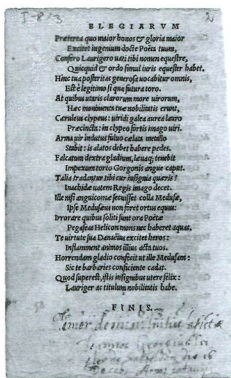 ELEGIARVM
Præterea quo maior honos & gloria maior
Excitet ingenium docte Poëta tuum,
Confero Laurigero uati tibi nomen equestre,
Quicquid & ordo simul iuris equester habet.
Hinc tua posteritas generosa uocabitur omnis,
Est è legitimo si qua futura toro.
At quibus utaris clarorum more uirorum,
Hæc monimenta tuæ nobilitatis erunt.
Cæruleus clypeus: uiridi galea aurea lauro
Præcincta: in clypeo fortis imago uiri.
Arma uir indutus fuluo cælata metallo
Stabit: is alatos debet habere pedes.
Falcatum dextra gladium, læuaq; tenebit
Impexum toruo Gorgonis angue caput.
Talia tradantur tibi cur insignia quæris?
Inachidæ uatem Regis imago decet.
Ille nisi anguicomæ secuisset colla Medusæ,
Ipse Medusæus non foret ortus equus:
Irrorare quibus soliti sunt ora Poëtæ
Pegaseas Helicon mons nec haberet aquas.
Te uirtute sua Danaëius excitet heros:
Inflamment animos illius acta tuos.
Horrendam gladio confecit ut ille Medusam:
Sic te barbaries conficiente cadat.
Quod superest, istis insignibus utere felix:
Lauriger ac titulum nobilitatis habe.
FINIS.